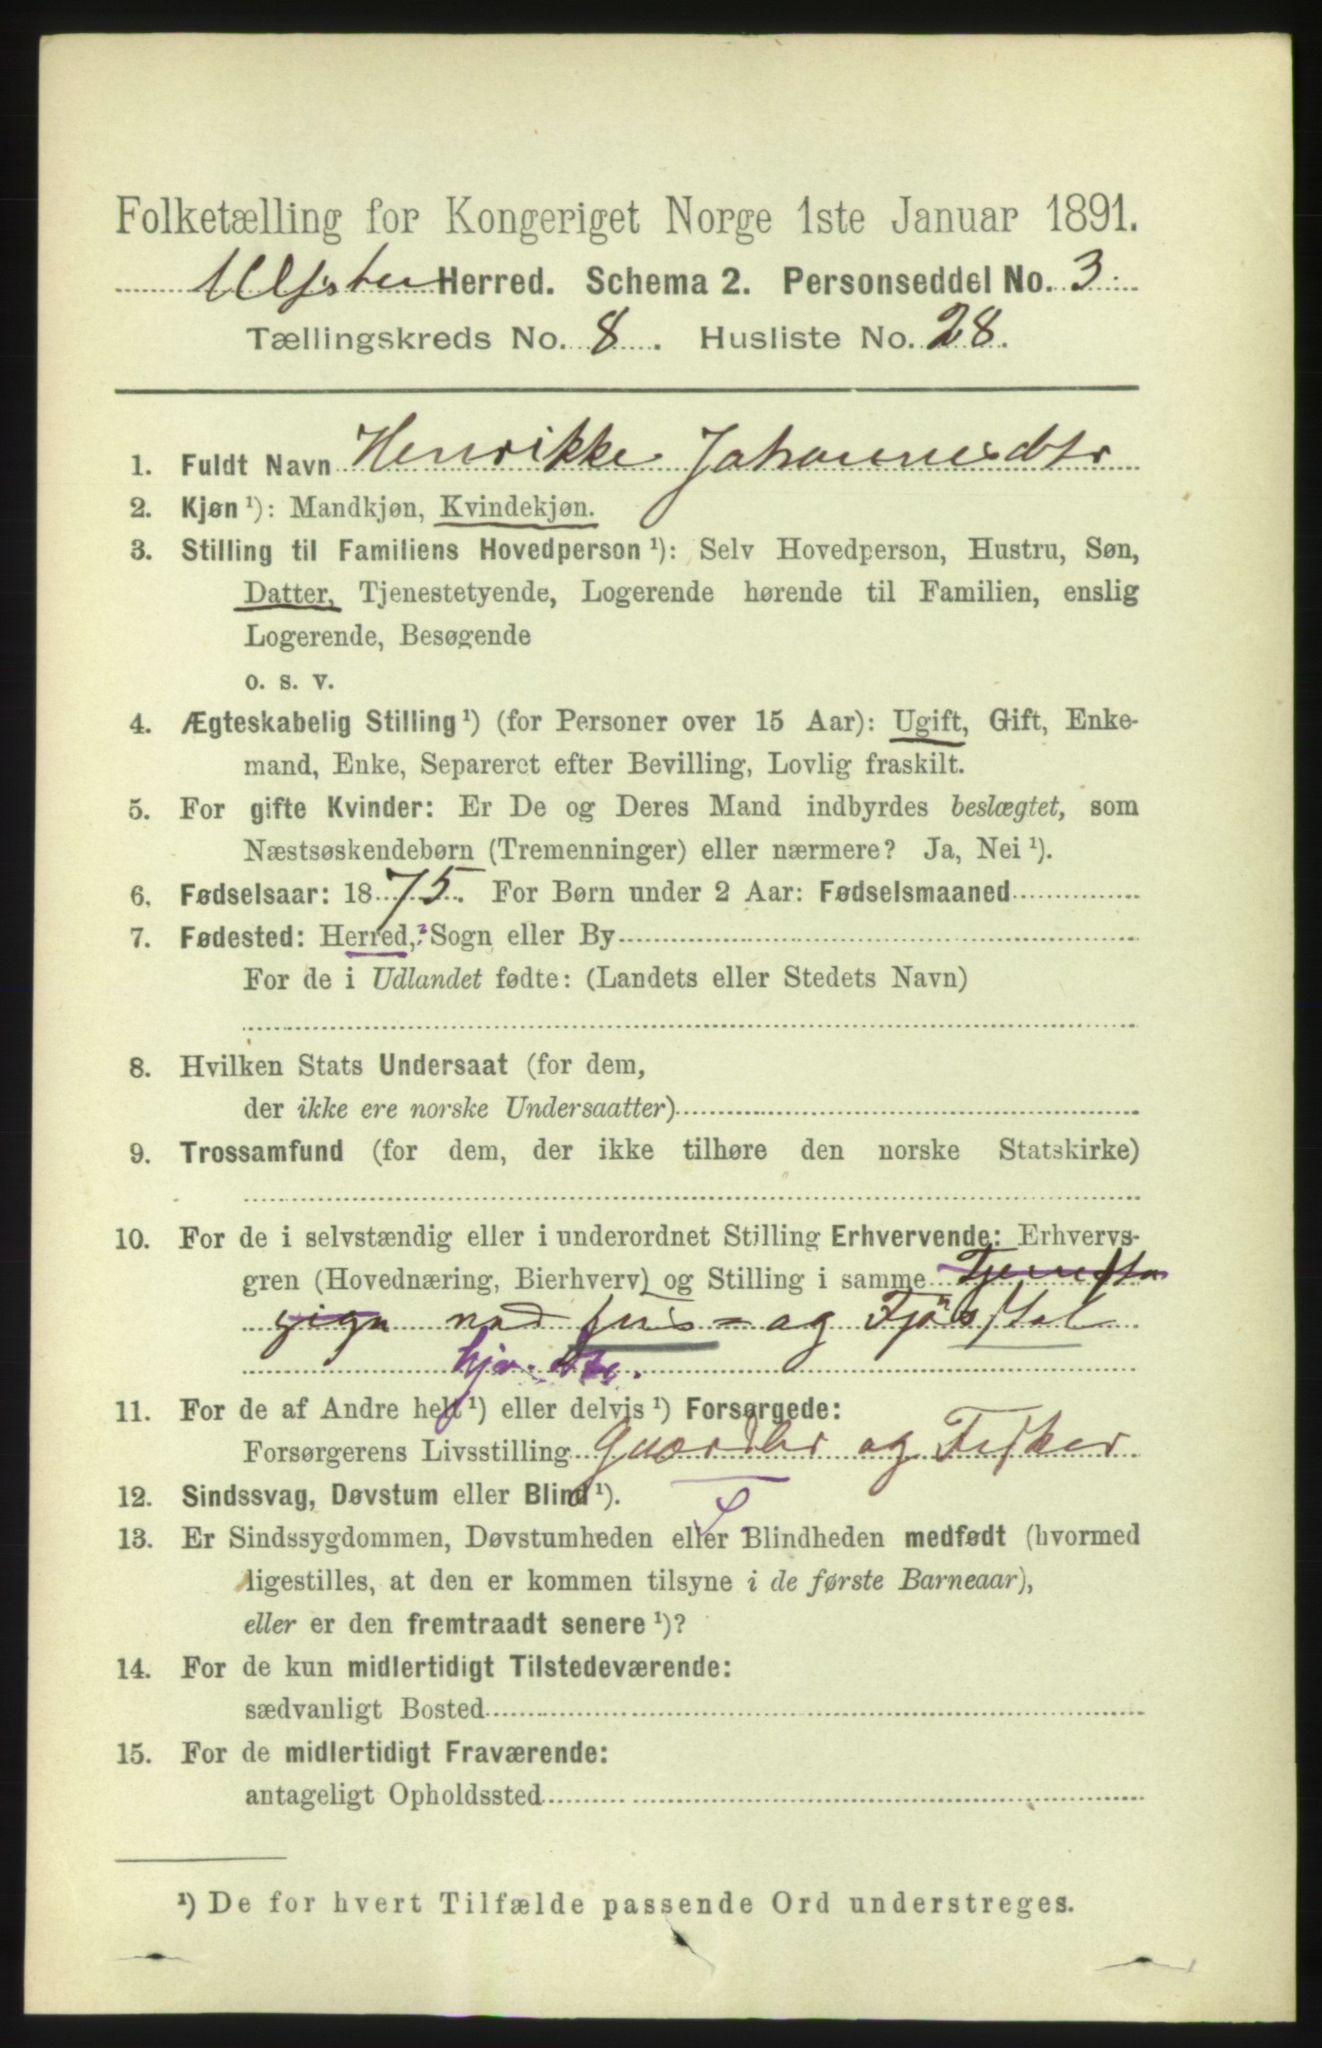 Folketælling for Kongeriget Norge 1ste Januar 1891.
Ulfsten Herred. Schema 2. Personseddel No. 3.
Tællingskreds No. 8. Husliste No. 28.
1. Fuldt Navn Henrikke Johannesdtr
2. Kjøn ¹): Mandkjøn, Kvindekjøn.
3. Stilling til Familiens Hovedperson ¹): Selv Hovedperson, Hustru, Søn,
Datter, Tjenestetyende, Logerende hørende til Familien, enslig
Logerende, Besøgende
o. s. v.
4. Ægteskabelig Stilling ¹) (for Personer over 15 Aar): Ugift, Gift, Enke-
mand, Enke, Separeret efter Bevilling, Lovlig fraskilt.
5. For gifte Kvinder: Er De og Deres Mand indbyrdes beslægtet, som
Næstsøskendebørn (Tremenninger) eller nærmere? Ja, Nei ¹).
6. Fødselsaar: 1875. For Børn under 2 Aar: Fødselsmaaned
7. Fødested: Herred, Sogn eller By
For de i Udlandet fødte: (Landets eller Stedets Navn)
8. Hvilken Stats Undersaat (for dem,
der ikke ere norske Undersaatter)
9. Trossamfund (for dem, der ikke tilhøre den norske Statskirke)
10. For de i selvstændig eller i underordnet Stilling Erhvervende: Erhvervs-
gren (Hovednæring, Bierhverv) og Stilling i samme
og Fjøsstel
11. For de af Andre helt ¹) eller delvis ¹) Forsørgede:
Forsørgerens Livsstilling Gaardbr og Fisker
12. Sindssvag, Døvstum eller Blind ¹).
F
13. Er Sindssygdommen, Døvstumheden eller Blindheden medfødt (hvormed
ligestilles, at den er kommen tilsyne i de første Barneaar),
eller er den fremtraadt senere ¹)?
14. For de kun midlertidigt Tilstedeværende:
sædvanligt Bosted
15. For de midlertidigt Fraværende:
antageligt Opholdssted
¹) De for hvert Tilfælde passende Ord understreges.